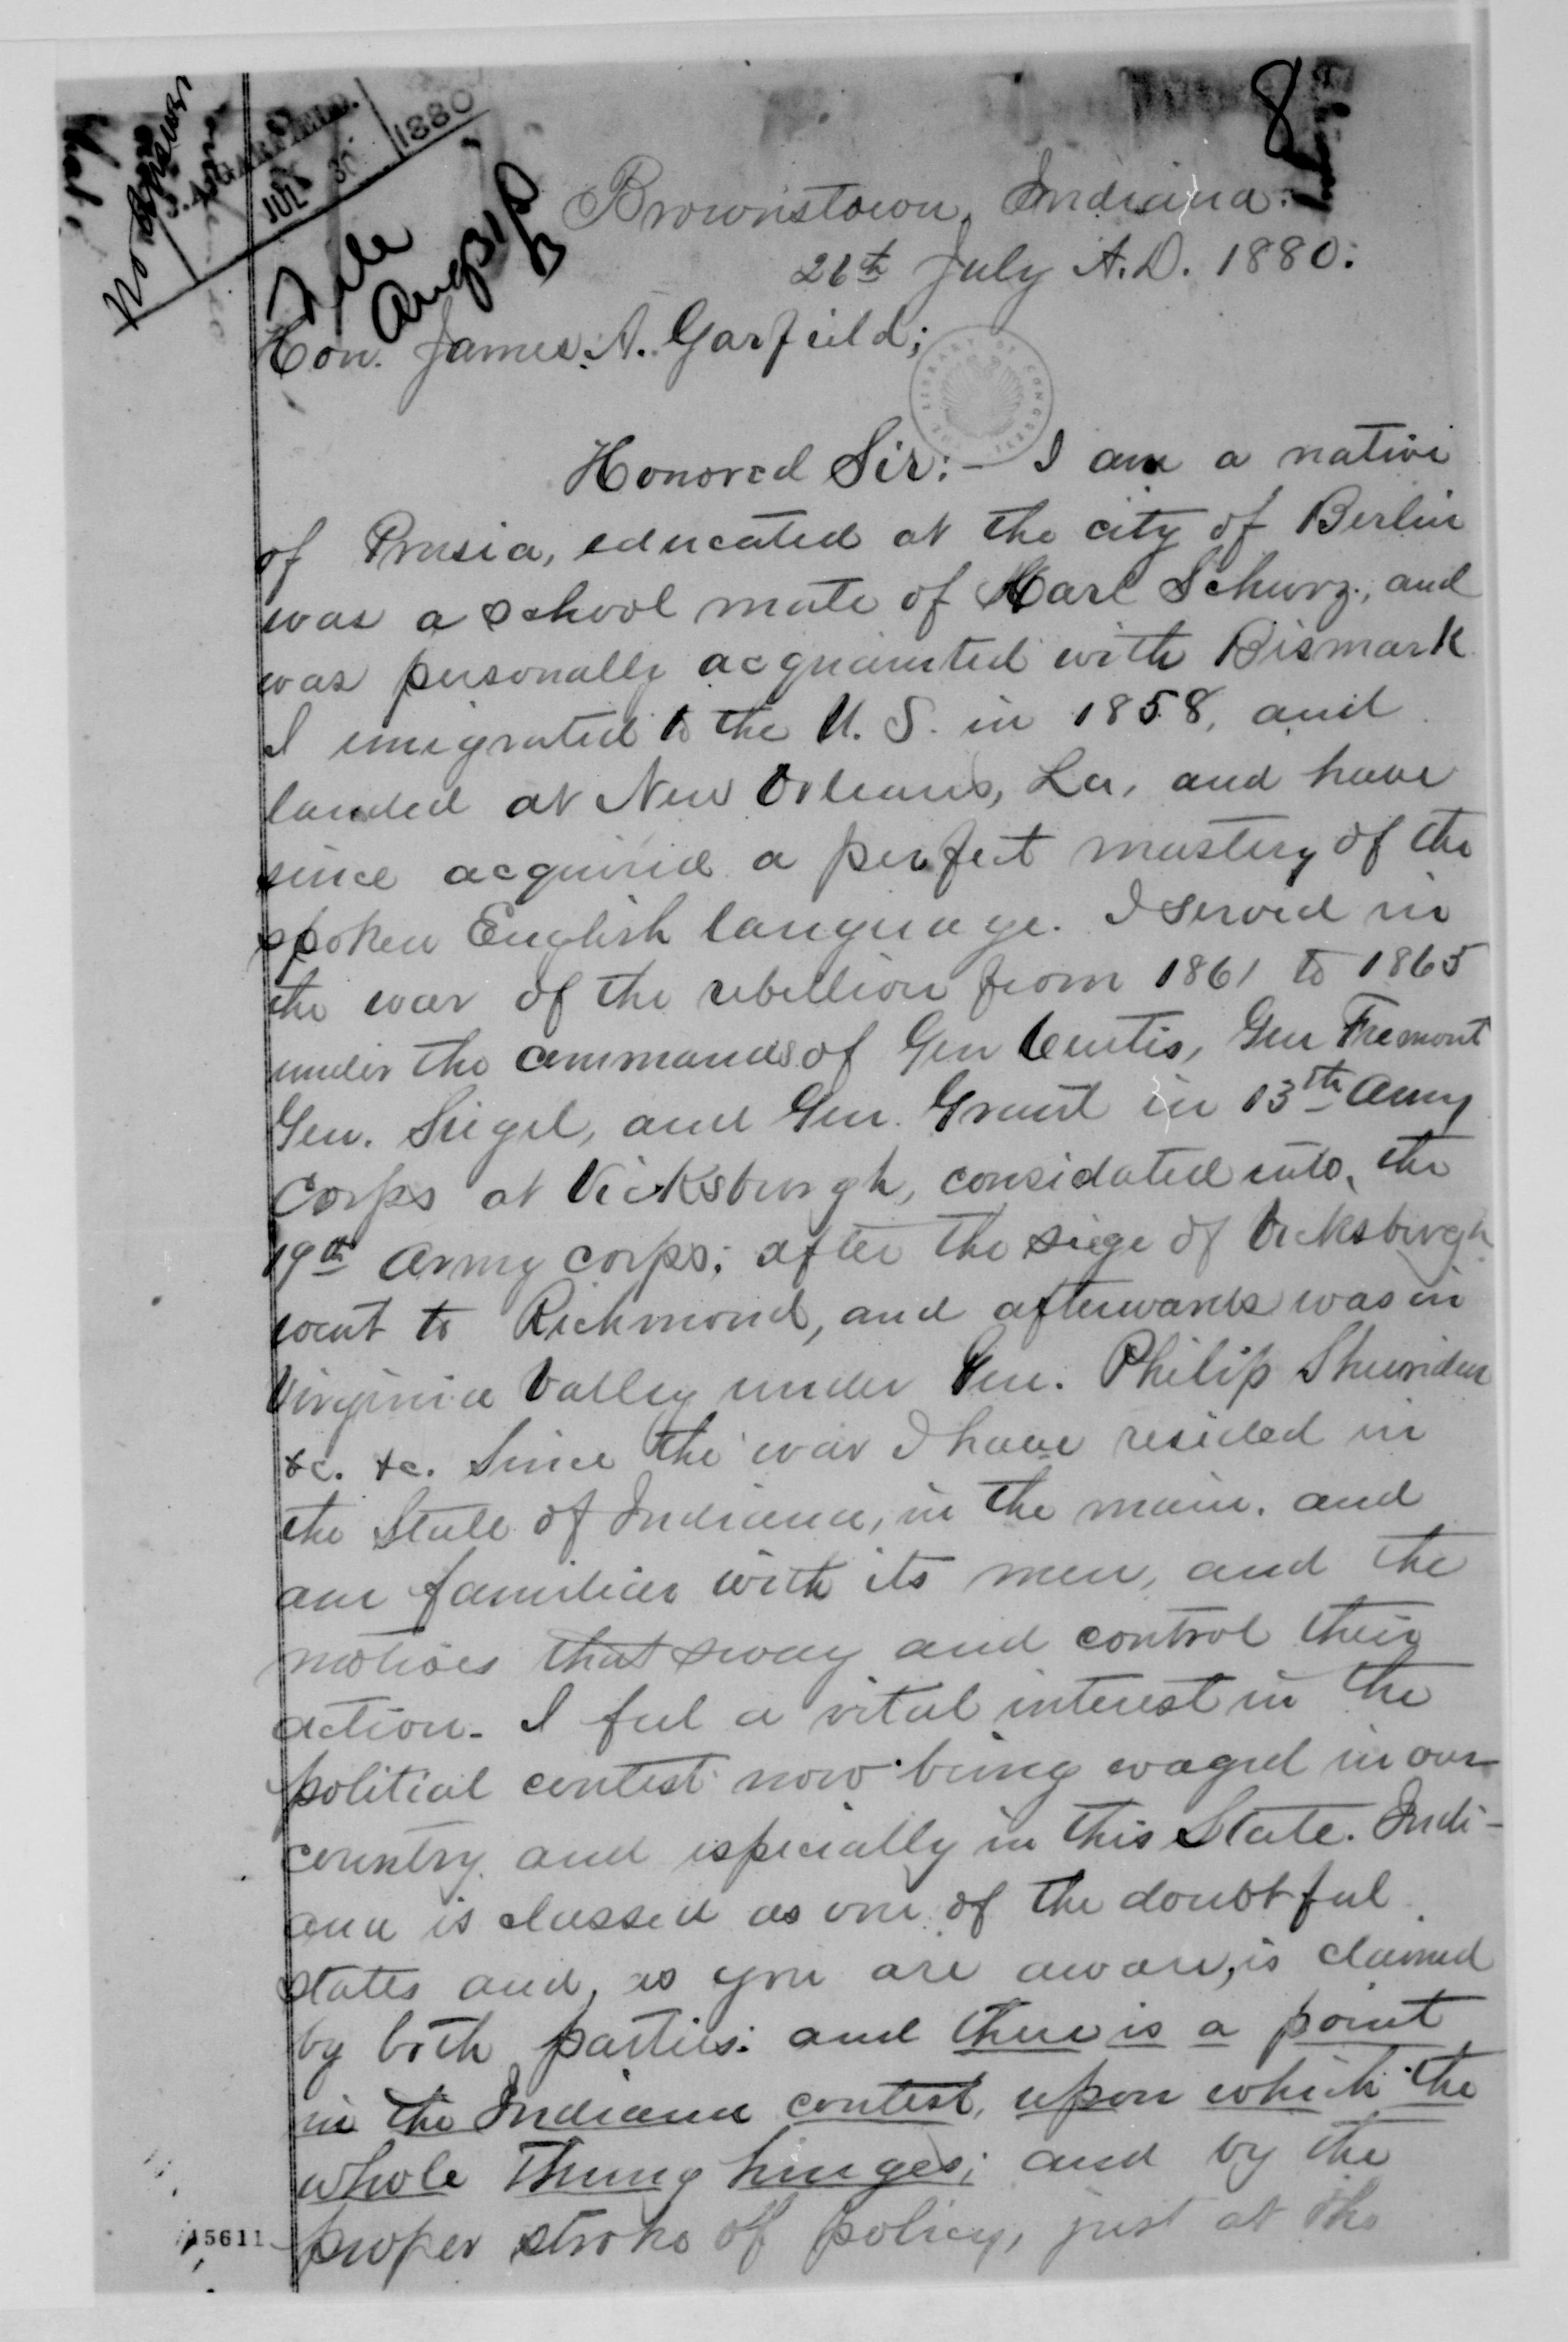 No answer
J. A. GARFIELD.
JUL 30
1880
File
Aug 31
8
Brownstown, Indiana:
26th July A.D. 1880:
Hon. James. A. Garfield;
THE LIBRARY OF CONGRESS
Honored Sir:— I am a native
of Prusia, educated at the city of Berlin
was a school mate of Karl Schurz., and
was personally acquainted with Bismark
I emigrated to the U. S. in 1858, and
landed at New Orleans, La, and have
since acquired a perfect mastery of the
spoken English language. I served in
the war of the rebellion from 1861 to 1865
under the commands of Gen Curtis, Gen Fremont
Gen. Siegel, and Gen. Grant in 13th Army
Corps at Vicksburgh, considated into, the
19th Army Corps; after the siege of Vicksburgh
went to Richmond, and afterwards was in
Virginia Valley under Gen. Philip Sheuridan
&c. &c. Since the war I have resided in
the State of Indiana, in the main. and
am familiar with its men, and the
motives that sway and control their
action. I feel a vital interest in the
politial contest now being waged in our
country and especially in this State. Indi-
ana is classed as one of the doubtful
states and, as you are aware, is claimed
by both parties: and there is a point
in the Indiana contest, upon which the
whole thing hinges; and by the
proper stroke of policy, just at the
15611